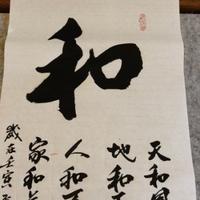 和
天和
地和
人和
家和
歲在壬寅